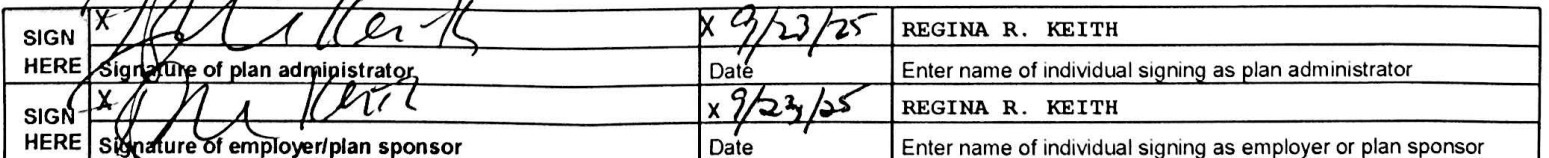 SIGN HERE X Keith X 9/23/25 REGINA R. KEITH
Signature of plan administrator Date Enter name of individual signing as plan administrator
SIGN HERE X Keith X 9/23/25 REGINA R. KEITH
Signature of employer/plan sponsor Date Enter name of individual signing as employer or plan sponsor